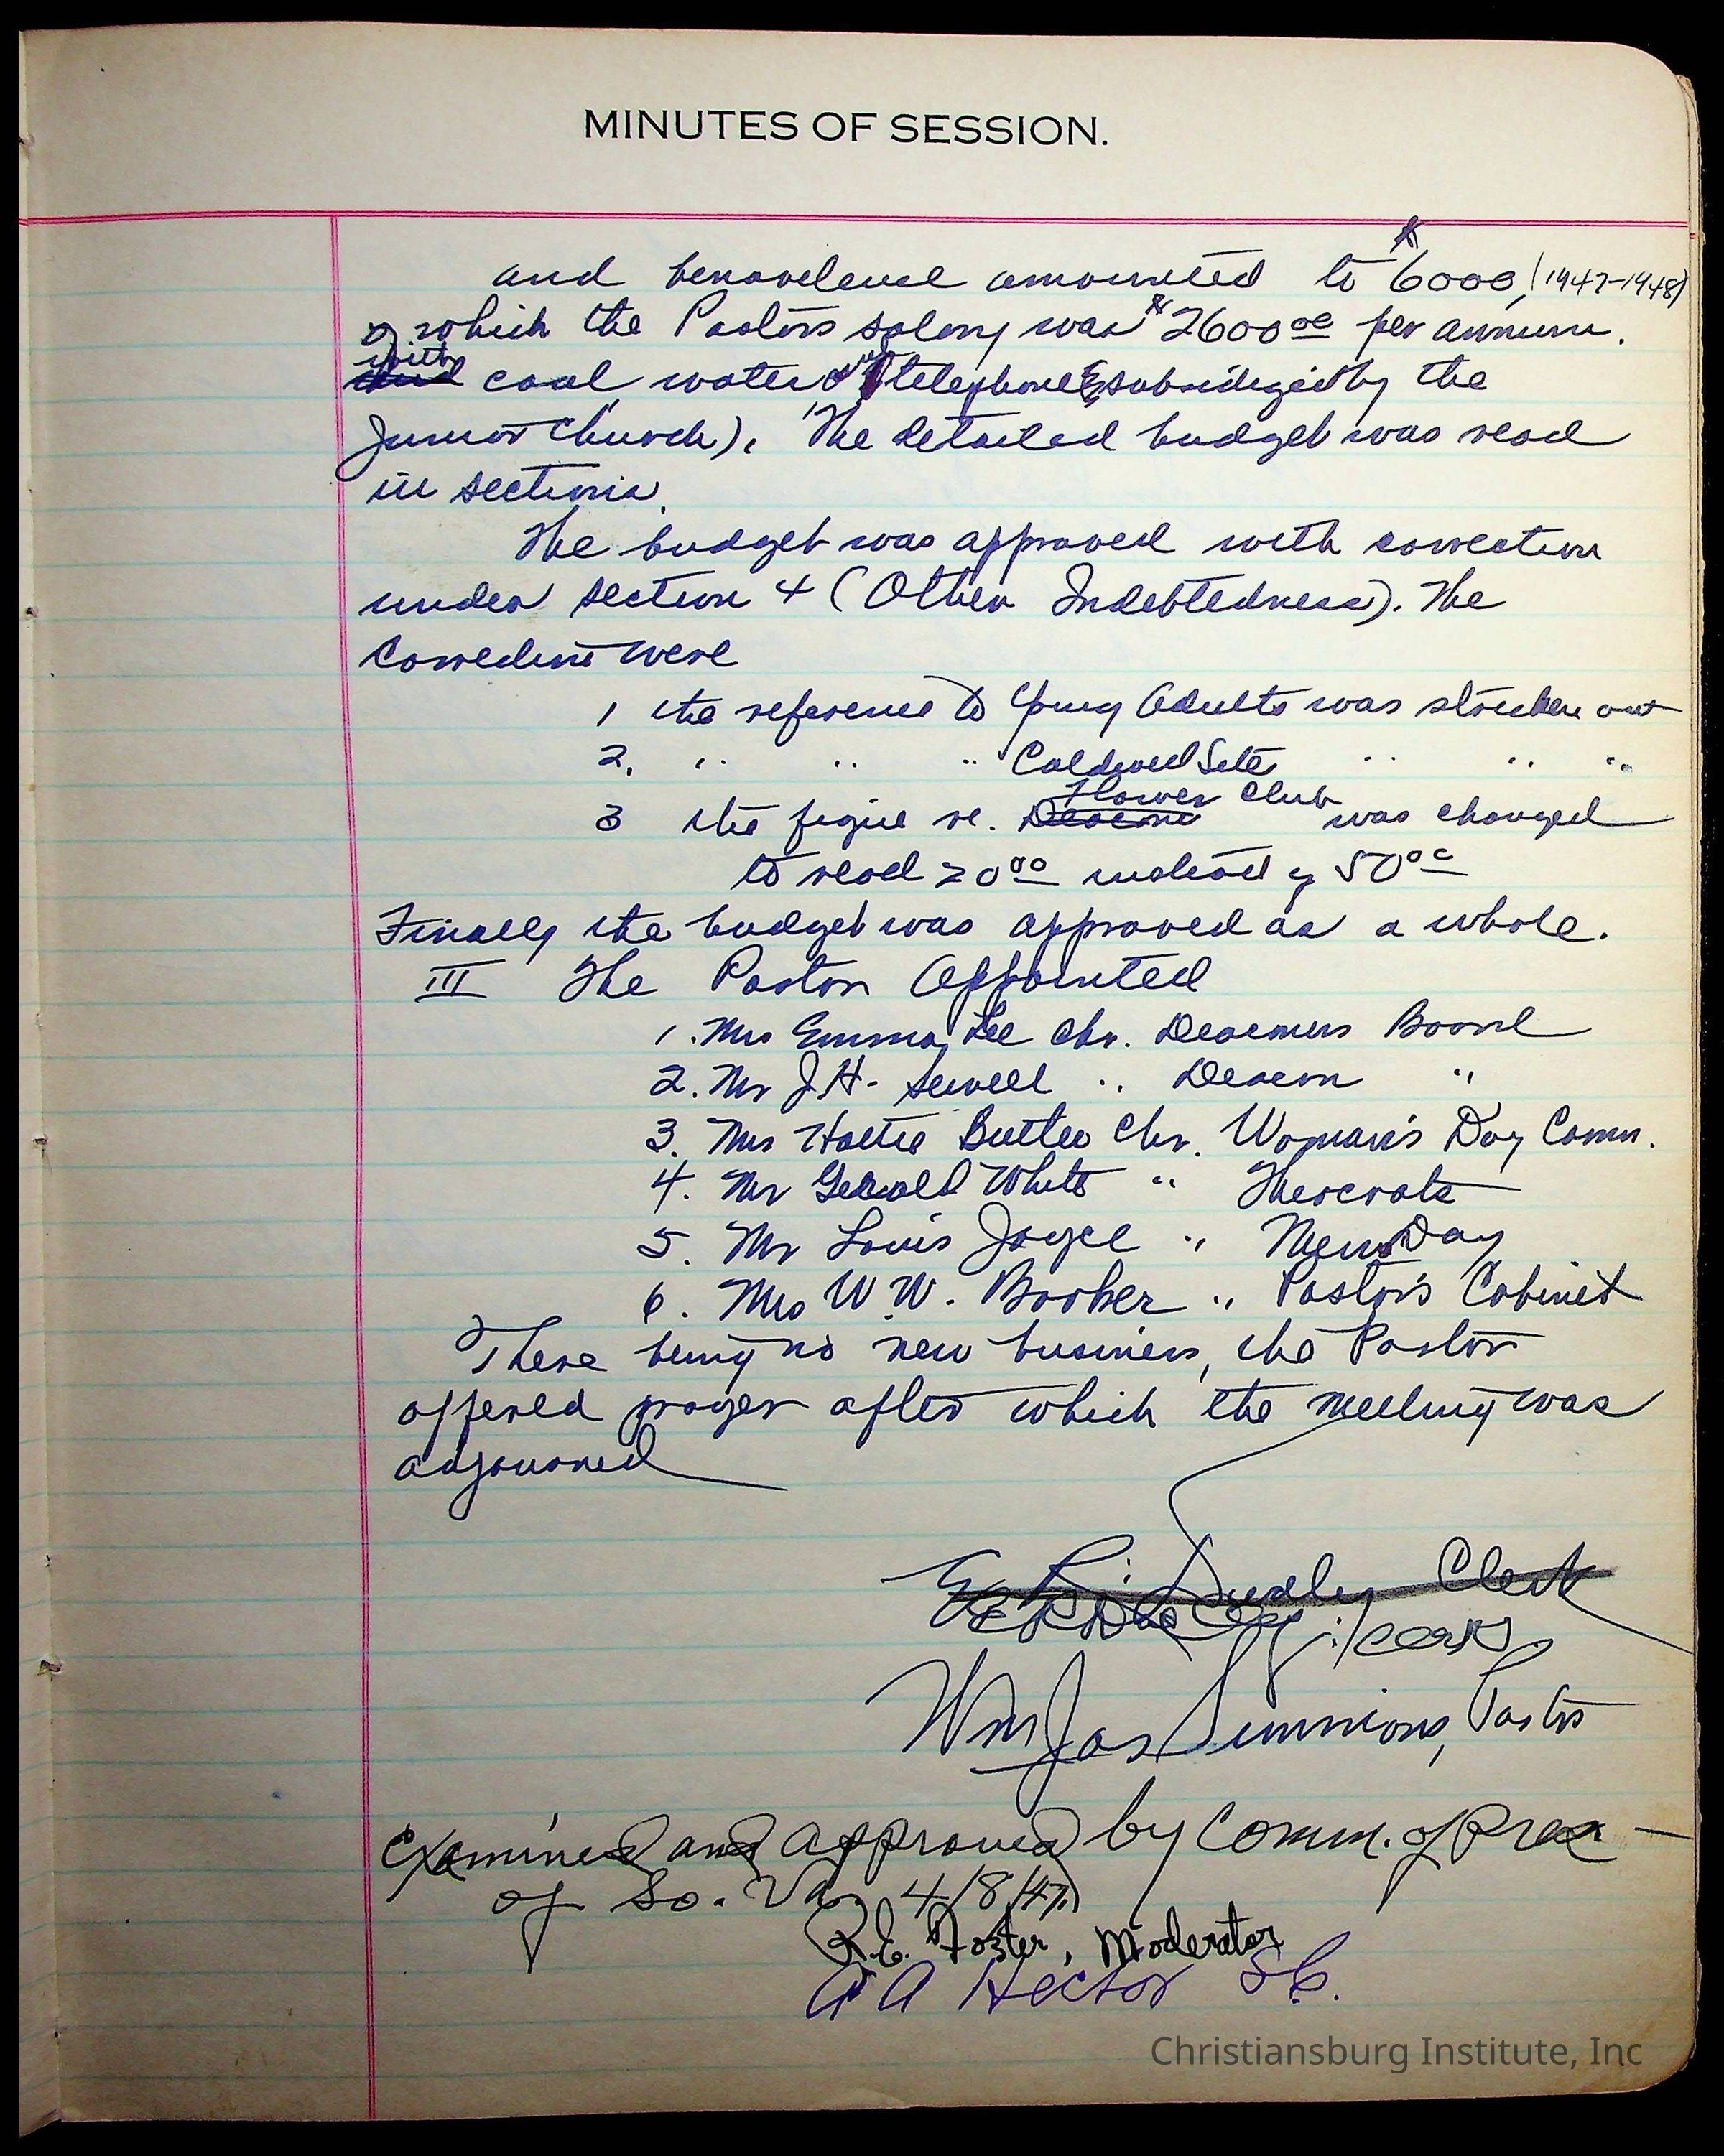 MINUTES OF SESSION.
and benevolence amounted to $6000, (1947-1948)
of which the Pastor's salary was $2600.00 per annum.
with
and coal, water & telephone subsidized by the
Junior Church). The detailed budget was read
in sections.
The budget was approved with correction
under section 4 (Other Indebtedness). The
corrections were
1 the reference to Young Adults was stricken out
2. " " " Caldwell Site " " "
Flower Club
3 the figure re. Deacons was changed
to read 20.00 instead of 50.00
Finally the budget was approved as a whole.
III The Pastor Appointed
1. Mrs Emma Lee Chr. Deacons Board
2. Mr J.H. Sewell " Deacon "
3. Mrs Hattie Butler Chr. Woman's Day Comm.
4. Mr Gerald White "
5. Mr Louis Joyce " Mens Day
6. Mrs W.W. Booker " Pastor's Cabinet
There being no new business, the Pastor
offered prayer after which the meeting was
adjourned
Dudley Clerk
Wm Jas Simmons, Pastor
Examined and approved by Comm. of Pres-
of So. Va. 4/8/47
R.E. Foster, Moderator
A A Hector S.C.
Christiansburg Institute, Inc